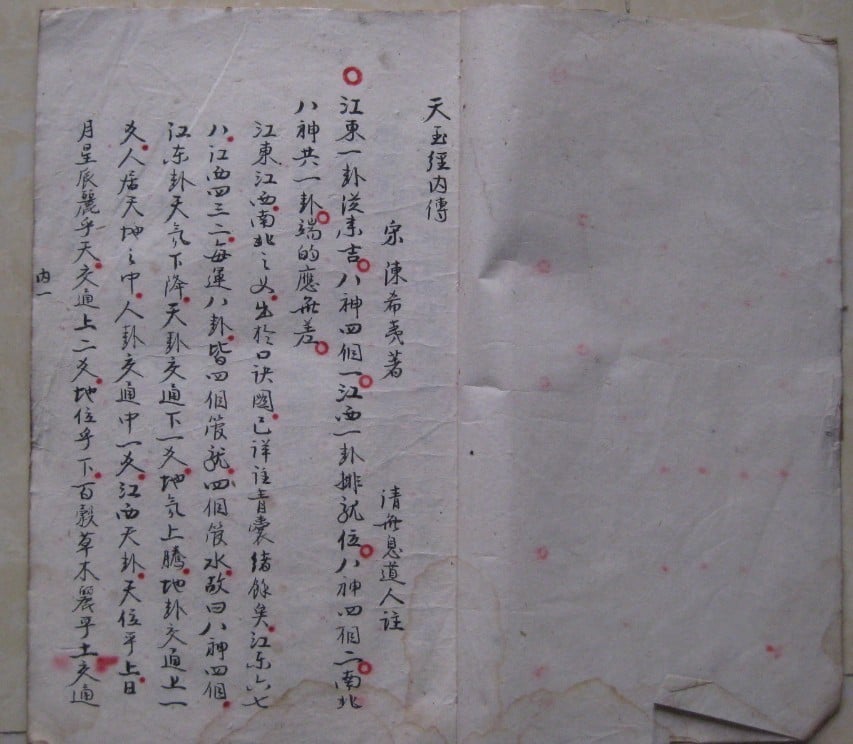 天玉經內傳
宋 陳希夷著
清無息道人註
江東一卦從來吉八神四個一江西一卦排龍位八神四個二南北
八神共一卦端的應無差
江東江西南北之义出於口诀圖已详註青囊緒餘矣江东六七
八江西四三二每運八卦皆四個管龍四個管水故曰八神四個
江东卦天氣下降天卦交通下一爻地氣上騰地卦交通上一
爻人居天地之中人卦交通中一爻江西天卦天位乎上日
月星辰麗乎天交通上二爻地位乎下百穀草木麗乎土交通
内一